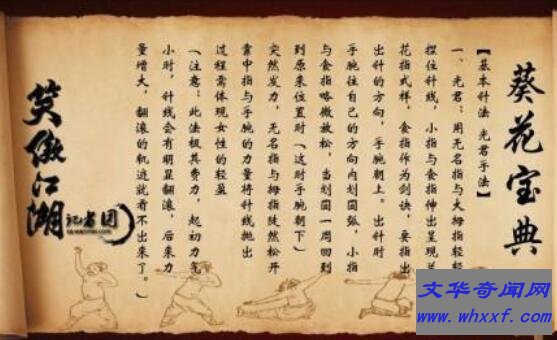 葵花宝典
【基本针法 光君手法】
一、光君：用无名指与大拇指轻轻
捏住针线，小指与食指伸出呈现兰
花指式样，食指作为剑诀，要指出
出针的方向，手腕朝上。出针时
手腕往自己的方向内划圆弧，小指
与食指略微放松，当划圆一周回到
到原来位置时（这时手腕朝下）
突然发力，无名指与拇指陡然松开
靠中指与手腕的力量将针线抛出
过程需体现女性的轻盈
（注意：此法极其费力，起初力气
小时，针线会有明显翻滚，后来力
量增大，翻滚的轨迹就看不出来了。）
笑傲江湖
记者团
文华奇闻网
www.whxxf.com